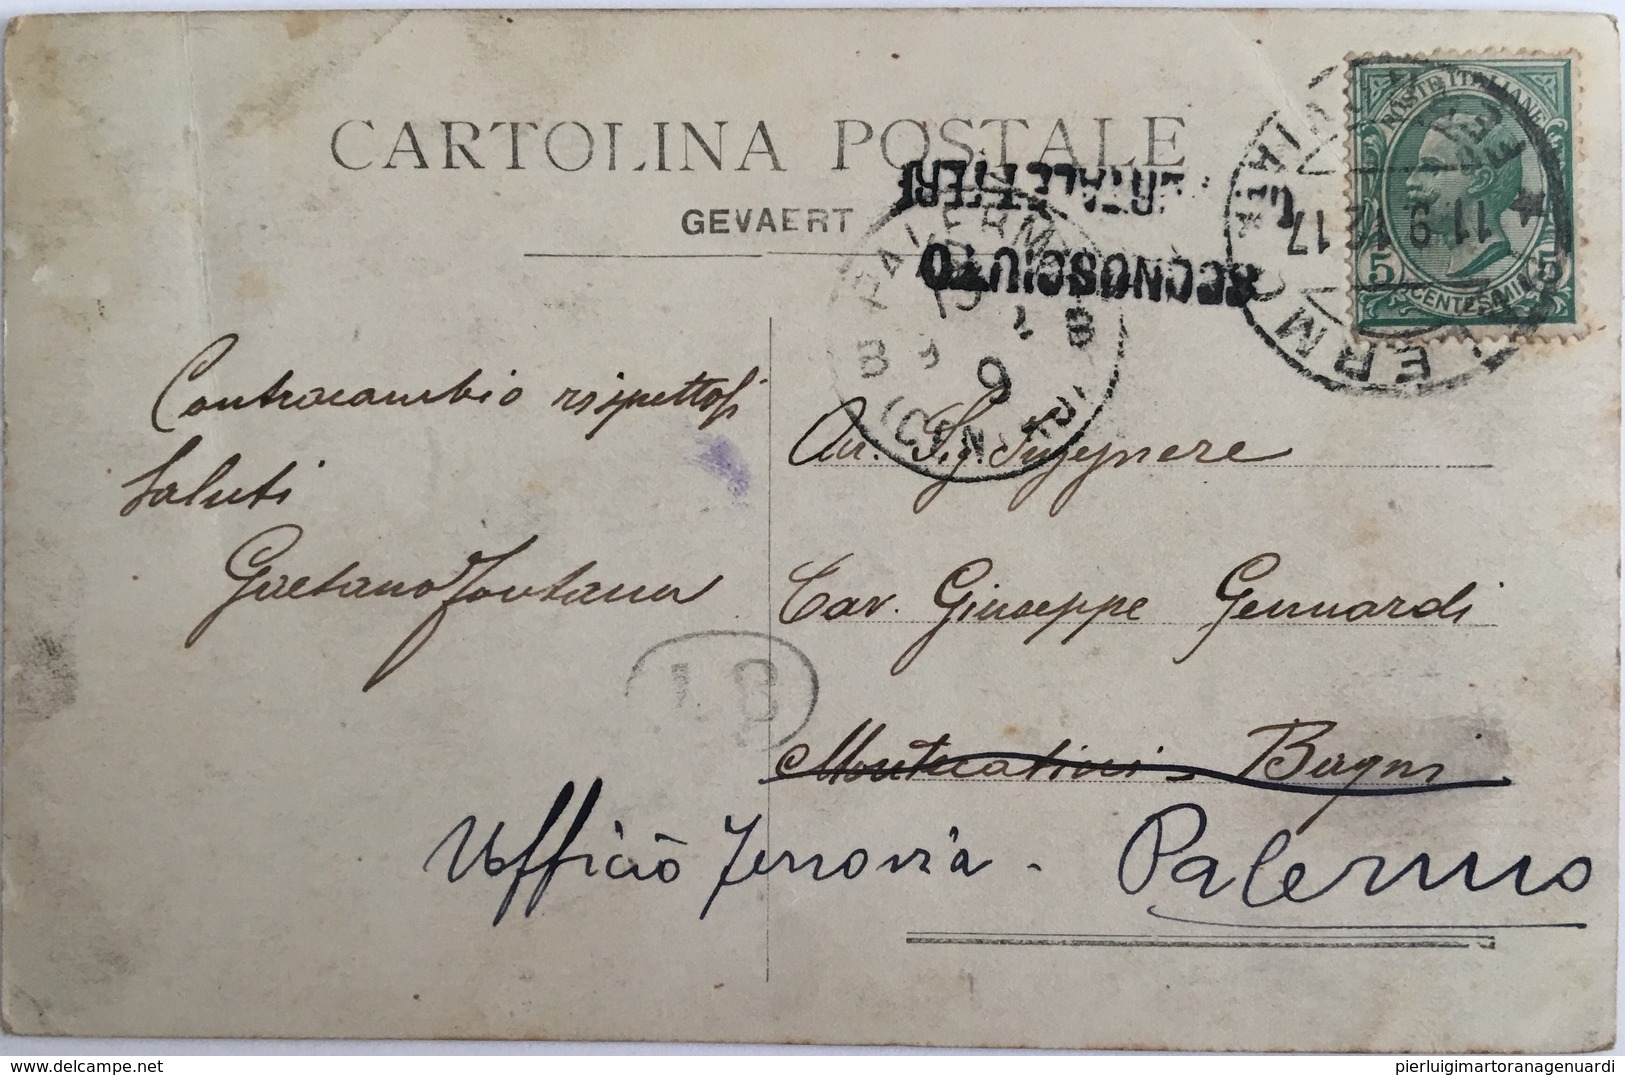 CARTOLINA POSTALE
GEVAERT
POSTE ITALIANE
5 CENTESIMI 5
11 9
17
PALERMO
Contracambio rispettosi
Saluti
Gaetano Fontana
All. Sig. Ingegnere
Cav. Giuseppe Gennardi
Montecatini - Bagni
Ufficio Ferrovia - Palermo
pierluigimartoranagenuardi